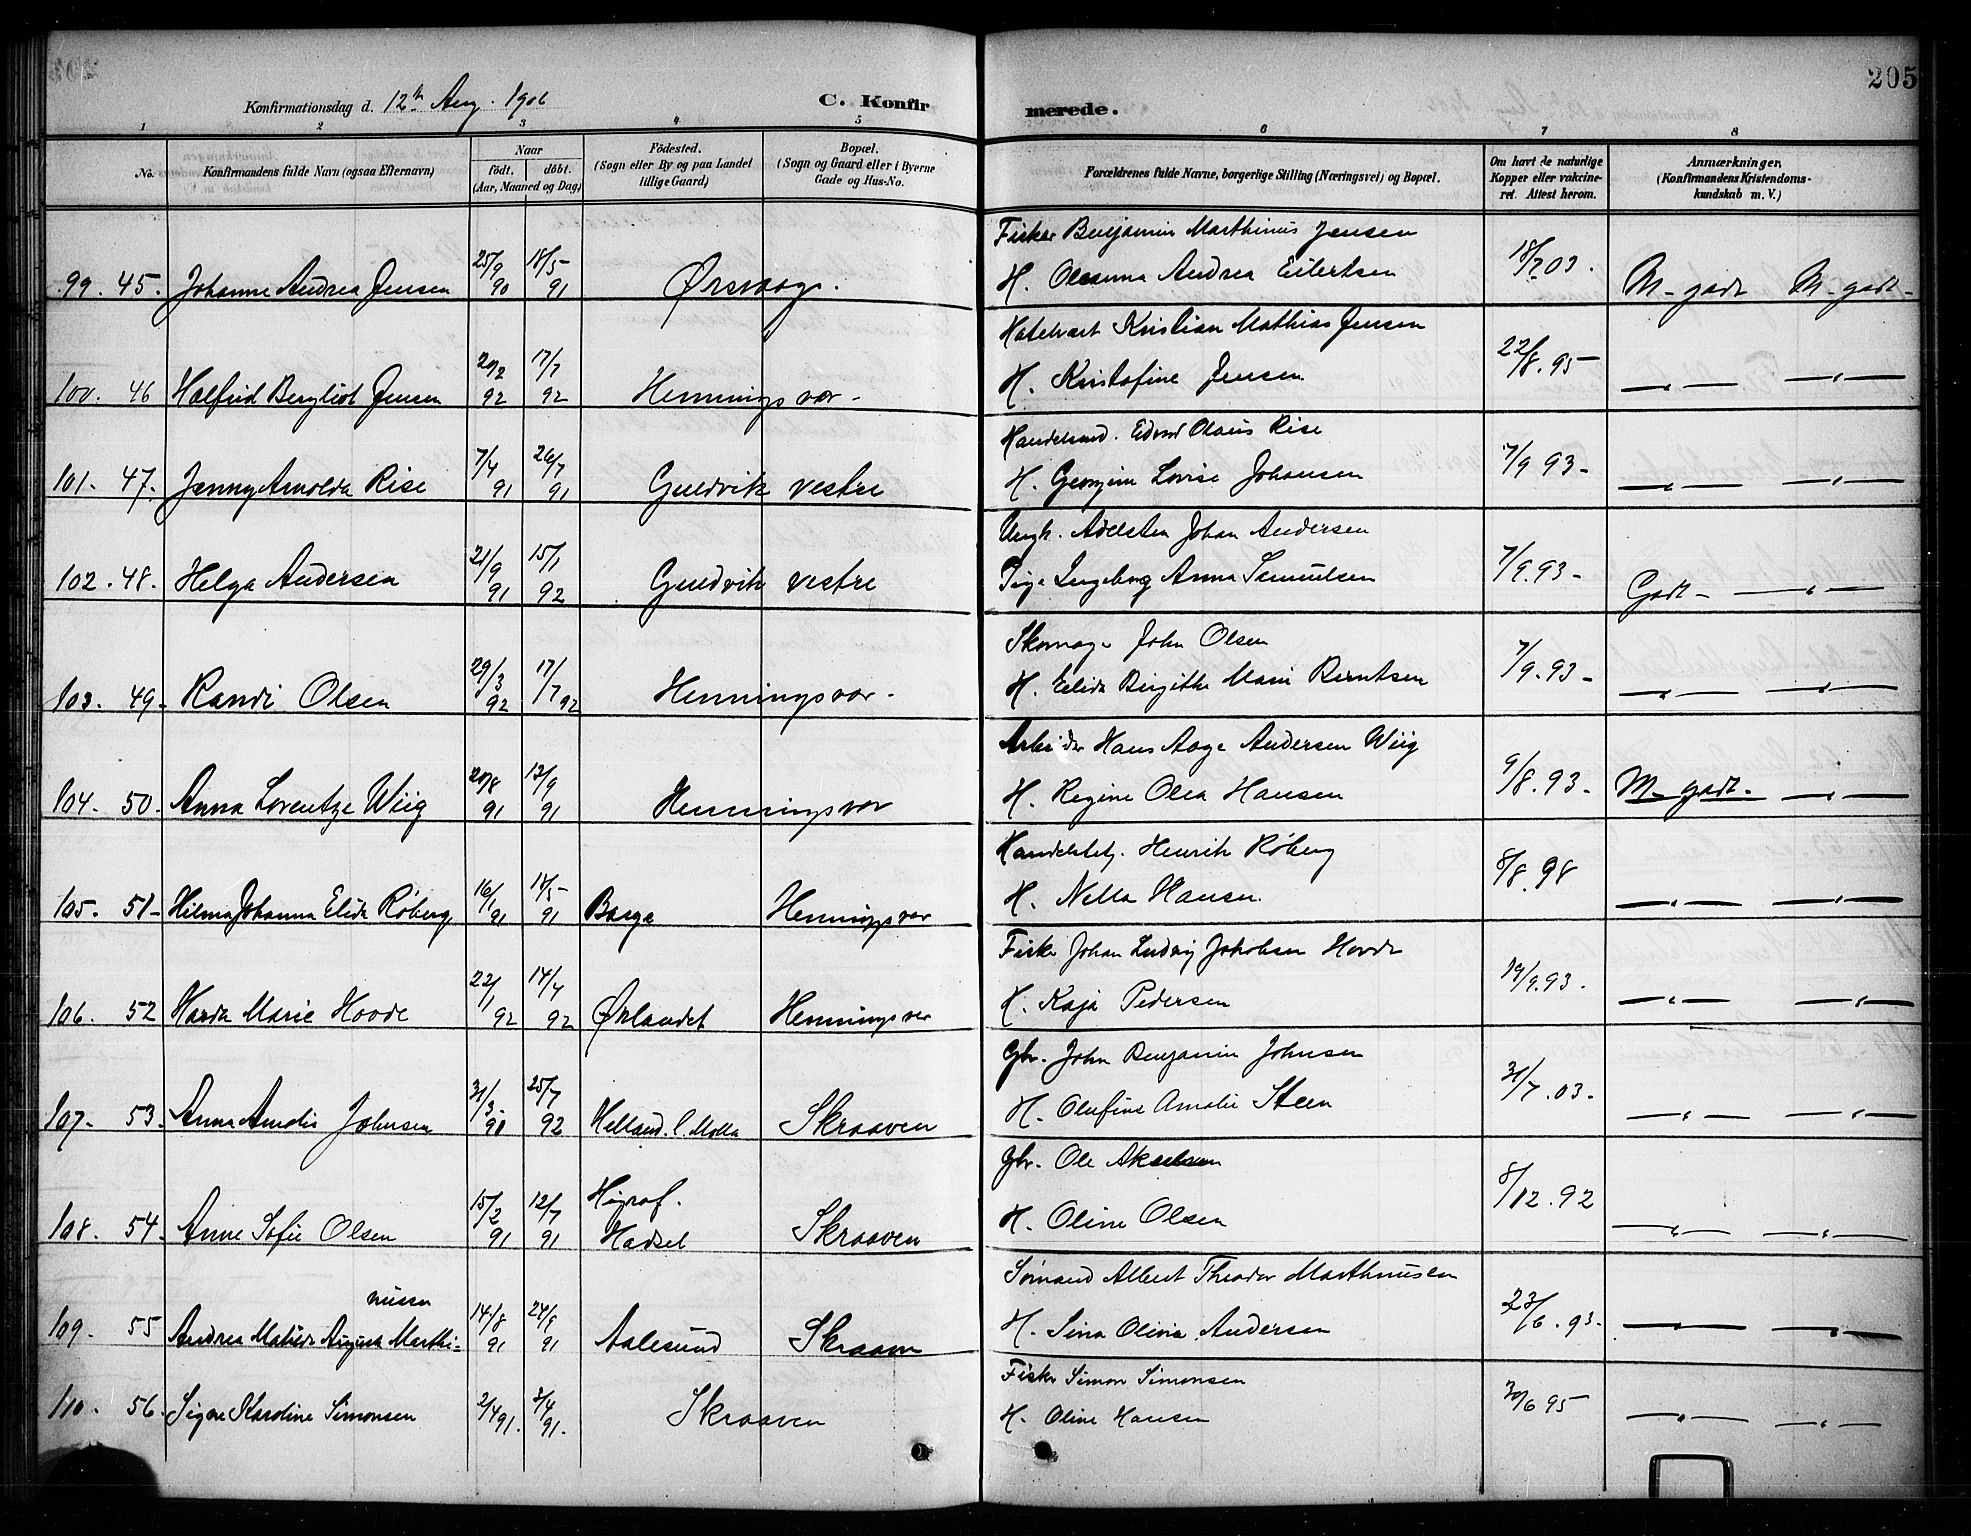 205
Konfirmationsdag d. 12te Aug. 1906 C. Konfirmerede.
1 2 3 4 5 6 7 8
No. Konfirmandens fulde Navn (ogsaa Efternavn) Naar født. døbt. (Aar, Maaned og Dag) Födested. (Sogn eller By og paa Landet tillige Gaard) Bopæl. (Sogn og Gaard eller i Byerne Gade og Hus-No. Forældrenes fulde Navne, borgerlige Stilling (Næringsvei) og Bopæl. Om havt de naturlige Kopper eller vakcineret. Attest herom. Anmærkninger, (Konfirmandens Kristendomskundskab m. V.)
Fisker Benjamin Marthinus Jensen
99. 45. Johanne Andrea Jensen 25/9 90 18/5 91 Ørsvaag. H. Oleanna Andrea Eilertsen 18/7 03. M-godt M-godt-
Kristian Mathias Jensen
100. 46 Halfrid Bergliot Jensen 20/2 92 17/7 92 Henningsvær- H. Kristofine Jensen 22/8. 95 —„— —„—
Handelsmd. Edvard Olaus Rise
101. 47. Jenny Arnolda Rise 7/4 91 26/7 91 Guldvik vestre H. Georgine Lovise Johansen 7/9 93- —„— —„—
Ungk. Adelsten Johan Andersen
102. 48. Helga Andersen 21/9 91 15/1 92 Guldvik vestre Pige Ingeborg Anna Samuelsen 7/9. 93- Godt- —„—
Skomager John Olsen
103. 49. Randi Olsen 29/3 92 17/7 92 Henningsvær- H. Elida Birgithe Marie Berntsen 7/9. 93- —„— —„—
Arbeider Hans Aage Andersen Wiig
104. 50. Anna Lorentze Wiig 20/8 91 13/9 91 Henningsvær H. Regine Olea Hansen 9/8. 93- M-godt- —„—
Handelsbetj. Henrik Röberg
105. 51- Hilma Johanna Elida Röberg 16/1 91 18/5 91 Henningsvær H. Nella Hansen. 8/8. 98 —„— —„—
Fisker Johan Ludvig Jakobsen Hovde
106. 52 Harda Marie Hovde 22/1 92 14/4 92 Ørlandet Henningsvær H. Kaja Pedersen 19/9.93. —„— —„—
Gbr. John Benjamin Johnsen
107- 53. Anna Amalie Johnsen 31/3 25/7 92 Helland. l. Molla Skraaven H. Olufine Amalie Steen 31/7.03. —„— —„—
Gbr. Ole Akselsen
108. 54. Anne Sofie Olsen 15/2 91 12/7 91 Hadsel Skraaven H. Oline Olsen 8/12. 92 —„— —„—
Sömand Albert Theodor Marthinusen
109. 55 Andrea Matilde Augusta Marthinussen 14/8 91 24/9 91 Aalesund Skraaven H. Sina Olivia Andersen 23/6. 93. —„— —„—
Fisker Simon Simonsen
110. 56. Signe Karoline Simonsen 2/4 91. 3/4 91. Skraaven H. Oline Hansen 30/6 95 —„— —„—